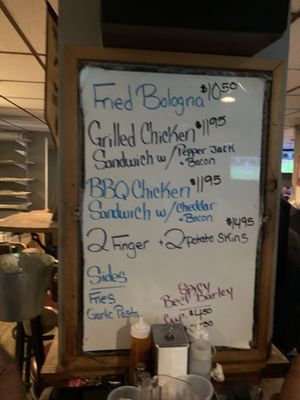 Fried Bologna $10.50
Grilled Chicken $11.95
Sandwich w/ Pepper Jack
+ Bacon
BBQ Chicken $11.95
Sandwich w/ Cheddar
+ Bacon
$14.95
2 Finger + 2 Potato Skins
Sides
Fries
Garlic Pasta
Spicy
Beef Barley
Cup $4.50